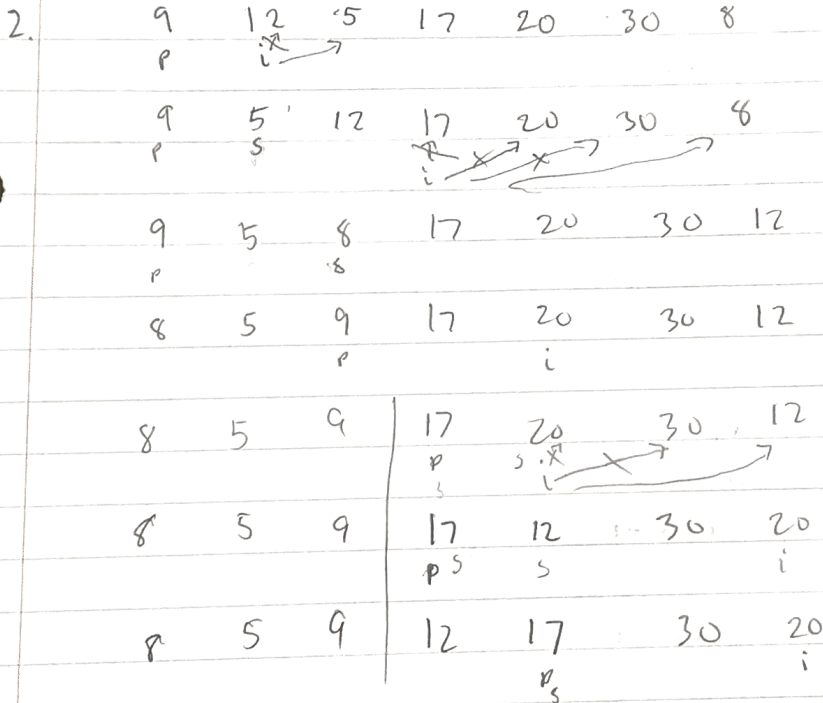 2. 9 12 5 17 20 30 8
p i
9 5 12 17 20 30 8
p s i
9 5 8 17 20 30 12
p s
8 5 9 17 20 30 12
p i
8 5 9 17 20 30 12
p s i
s
8 5 9 17 12 30 20
p s s i
8 5 9 12 17 30 20
p s i